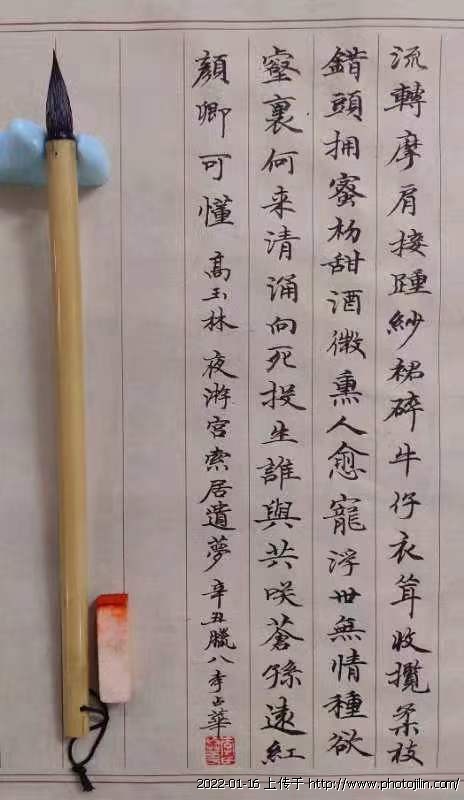 流轉摩肩接踵紗裙碎牛仔衣耸收攬柔枝
錯頭拥蜜杨甜酒微熏人愈寵浮世無情種欲
壑裏何来清涌向死投生誰與共咲蒼孫遠紅
顏卿可懂 高玉林 夜游宫索居遺夢 辛丑臘八李占華
2022-01-16 上传于 http://www.photojilin.com